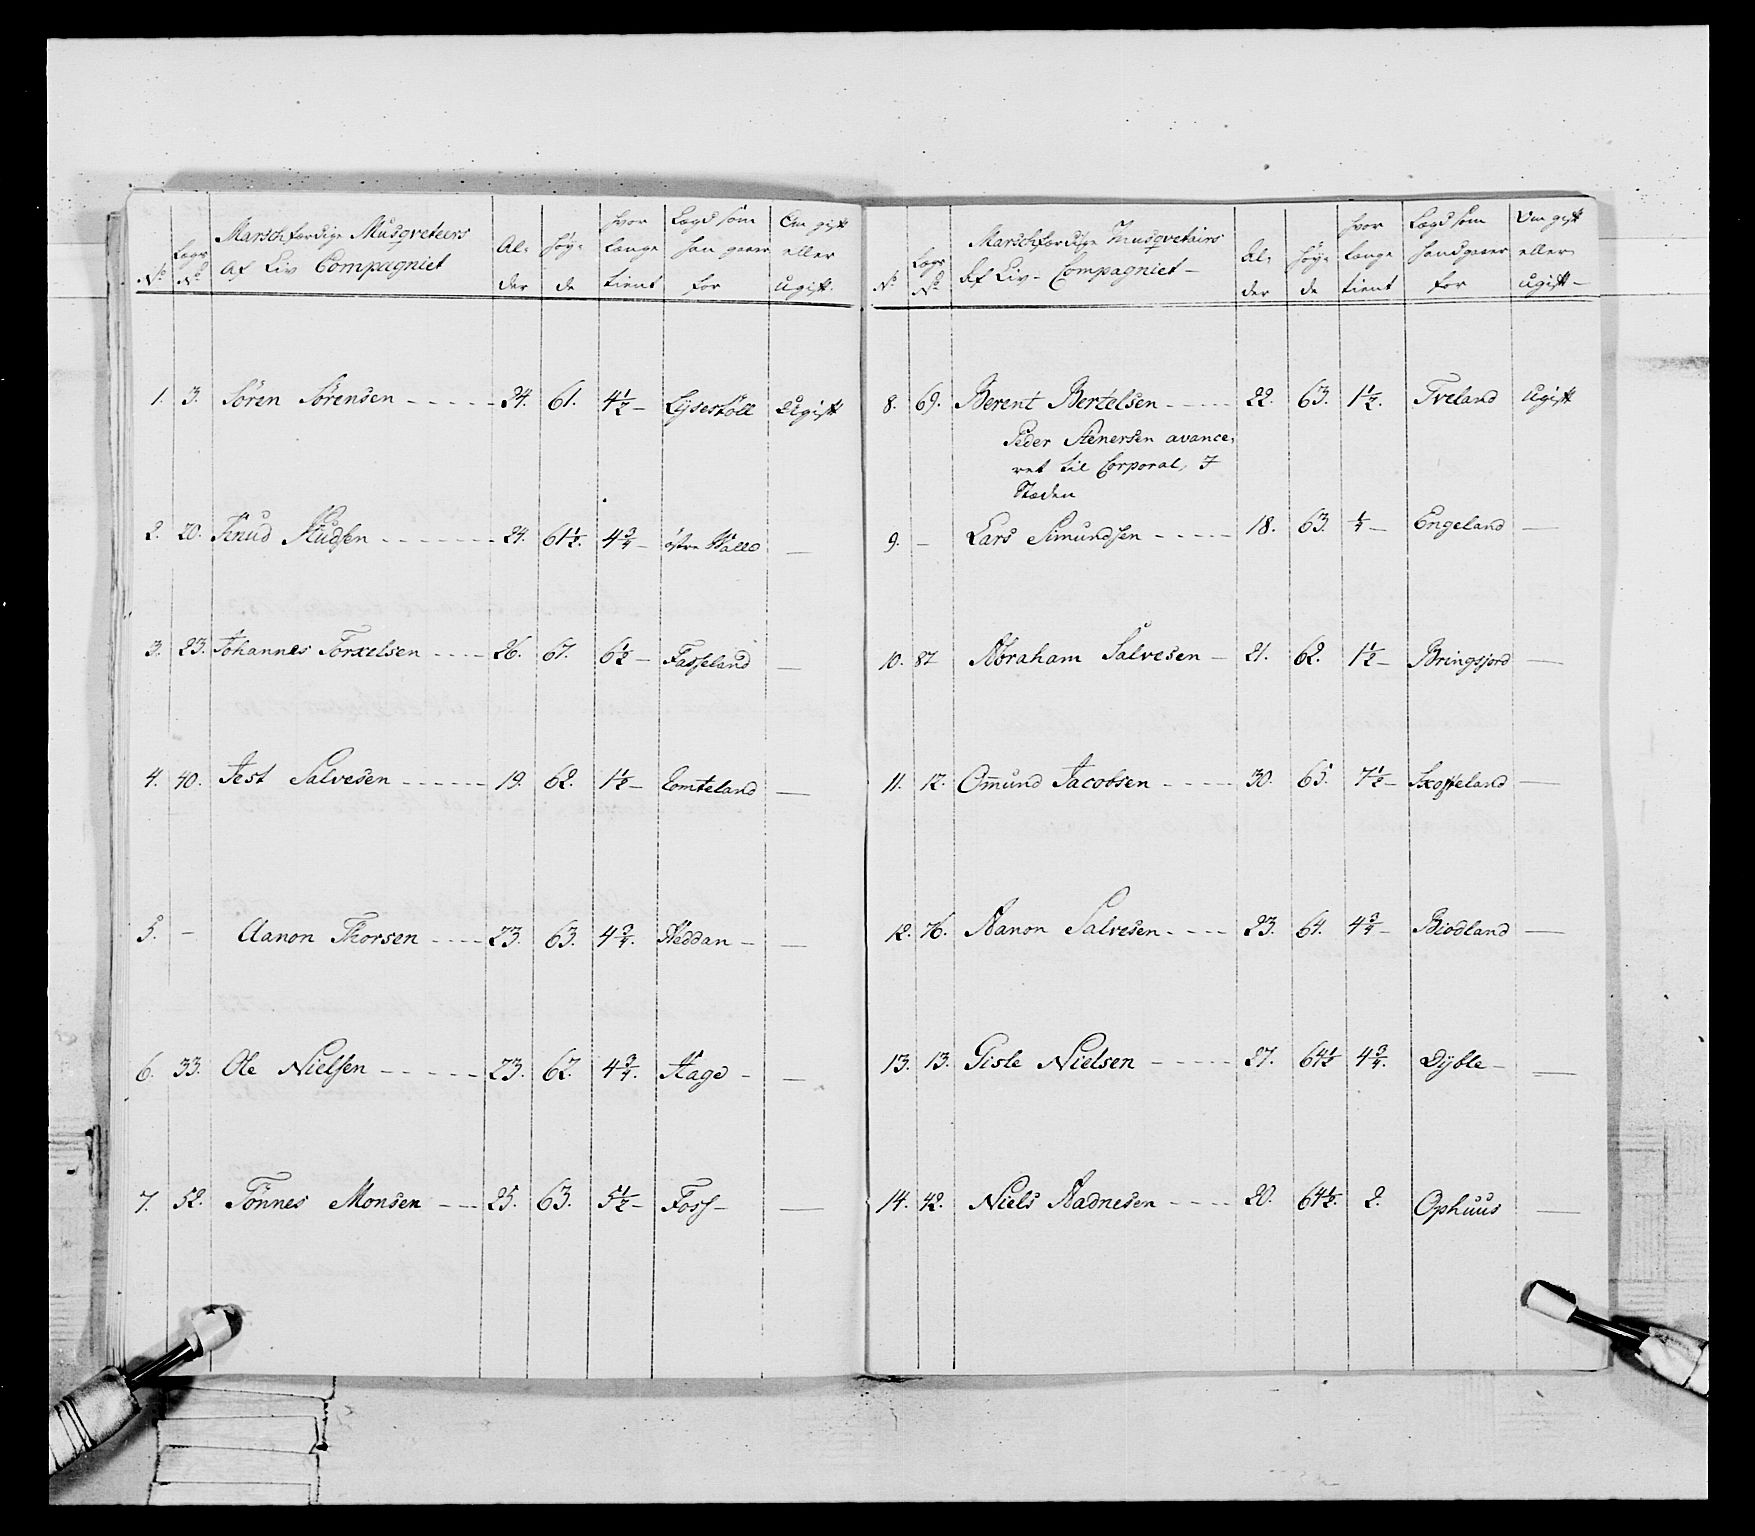 Marschfærdige Musqveteers
af Liv Compagniet
No
Lægs No
Al-
der
Høy-
de
hvor
længe
tient
Lægd som
han gaaer
for
Om gift
eller
ugift
1. 3. Sören Sörensen 24. 61. 4½ Lysestöll Ugift
2. 20. Knud Knudsen 24. 61½. 4¾ östre Walle —
3. 23. Johannes Torkelsen 26. 67. 6½ Fasseland —
4. 40. Jest Salvesen 19. 62. 1½ Tomteland —
5. – Aanon Thorsen 23. 63. 4¾. Heddan —
6. 33. Ole Nielsen 23. 62. 4¾. Hage —
7. 52. Tönnes Monsen 25. 63. 5½ Foss —
Marschfærdige Musqvetairs
Af Liv- Compagniet
No
Lægs No
Al-
der
Høy-
de
hvor
længe
tient
Lægd som
hand gaaer
for
Om gift
eller
ugift
8. 69. Berent Bertelsen 22. 63. 1½. Tveland Ugift
Peder Stenersen avance-
ret til Corporal, I
Stæden
9. – Lars Simundsen 18. 63. ¼ Engeland —
10. 87 Abraham Salvesen 21. 62. 1½ Bringsjord —
11. 12. Omund Jacobsen 30. 65. 7½ Skoffeland —
12. 76. Aanon Salvesen 23. 64. 4¾ Biodland —
13. 13. Gisle Nielsen 27. 64½ 4¾. Dyble —
14. 42. Niels Aadnesen 20. 64½. 2. Ophuus —